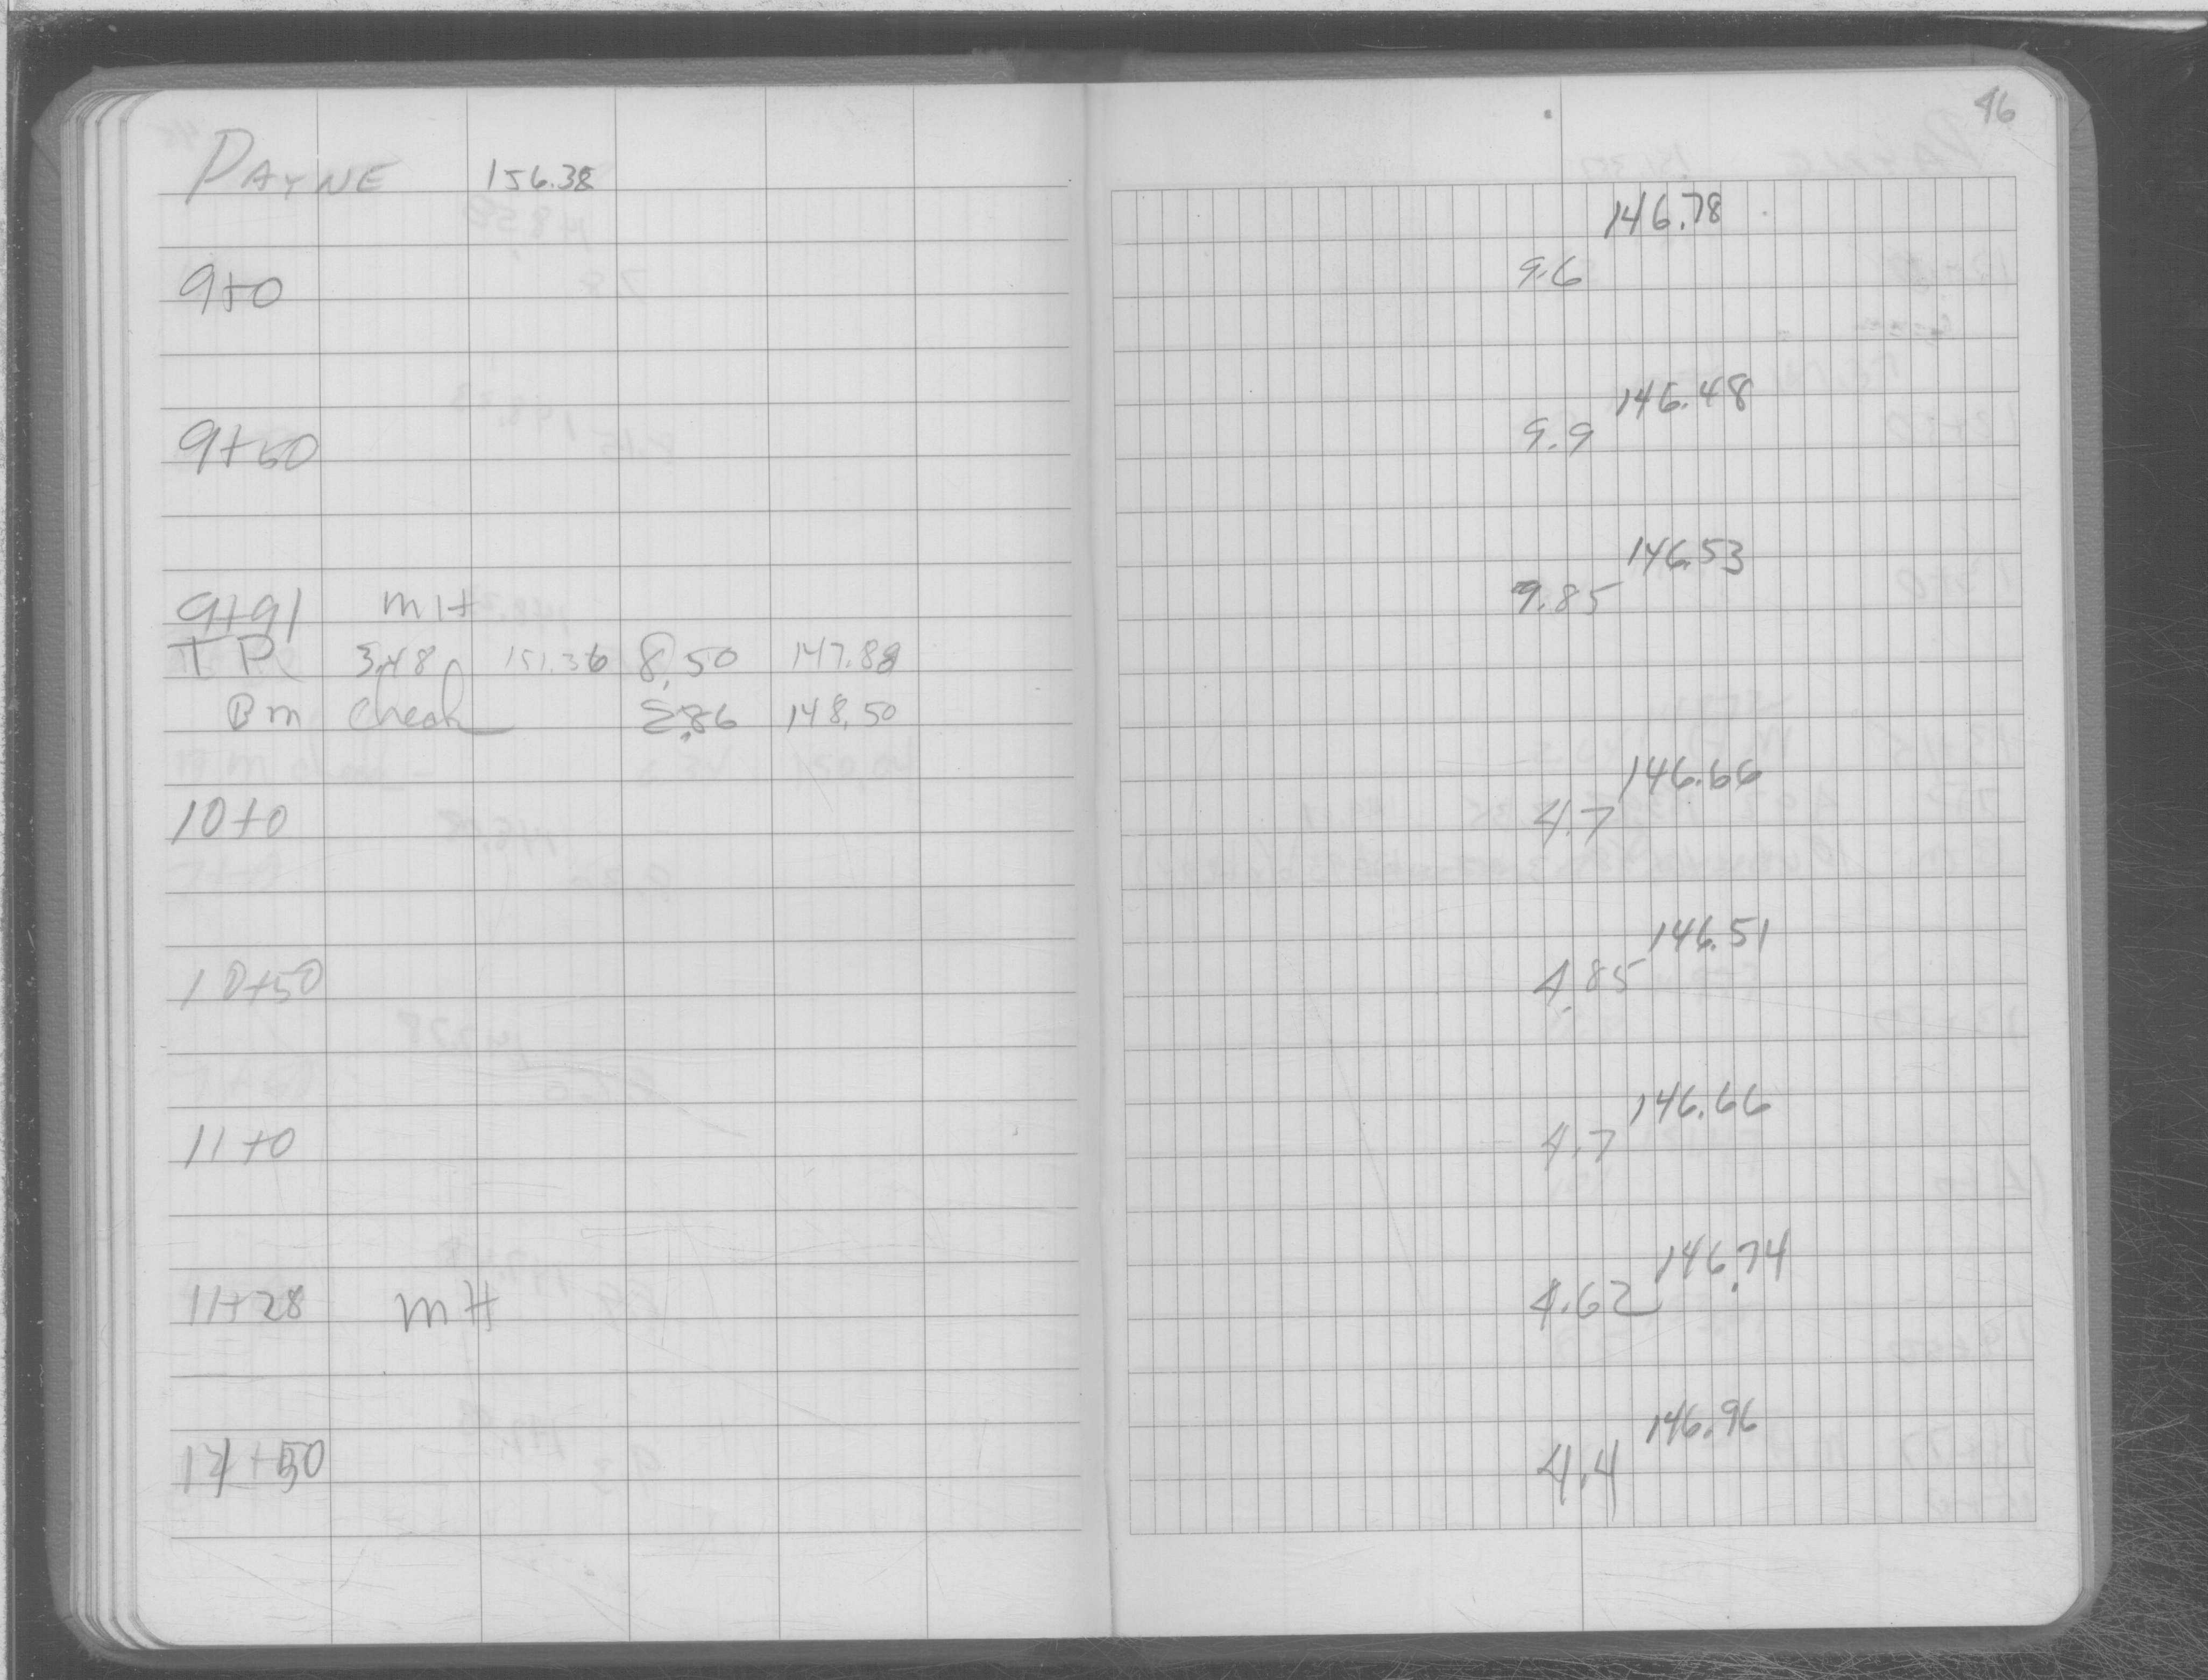 46
PAYNE 156.38
146.78
9+0 9.6
146.48
9+50 9.9
146.53
9+91 MH 9.85
T.P. 3.48 151.36 8.50 147.88
BM Check 2.86 148.50
146.66
10+0 4.7
146.51
10+50 4.85
146.66
11+0 4.7
146.74
11+28 MH 4.62
146.96
11+50 4.4